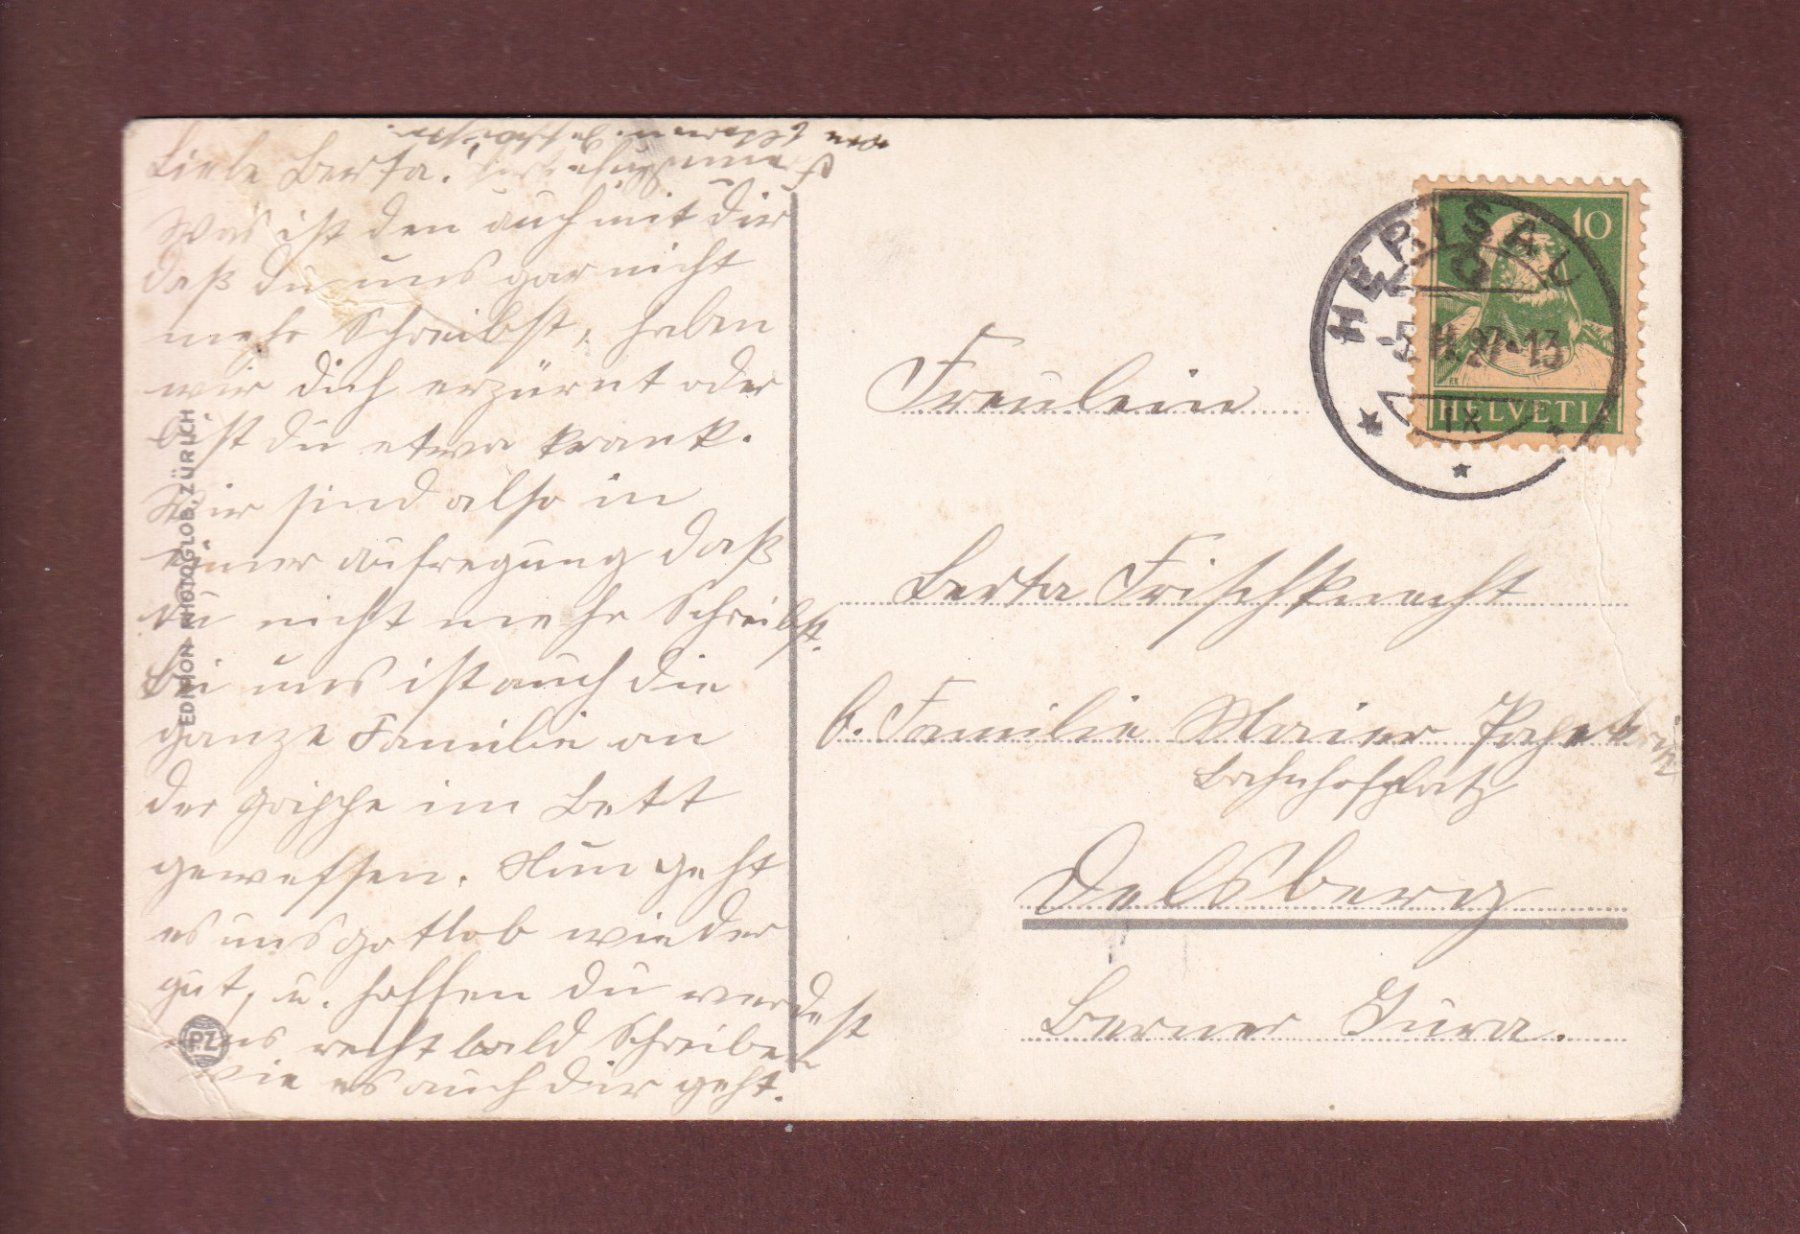 Liebe Berta.
Was ist den auch mit dir
daß du uns gar nicht
mehr Schreibst, haben
wir dich erzürnt oder
bist du etwa krank.
Wir sind also in
einer aufregung daß
du nicht mehr Schreibst.
Bei uns ist auch die
ganze Familie an
der Grippe im Bett
gewessen. Nun geht
es uns gotlob wieder
gut, u. hoffen du werdest
uns recht bald Schreiben
wie es auch dir geht.
von Eltern u. Geschwister
EDITION PHOTOGLOB, ZÜRICH
PZ
Freulein
Berta Frischknecht
b. Familie Maier
Bahnhofplatz
Delsberg
Berner Jura.
HERISAU
27-13
IX
10
HELVETIA